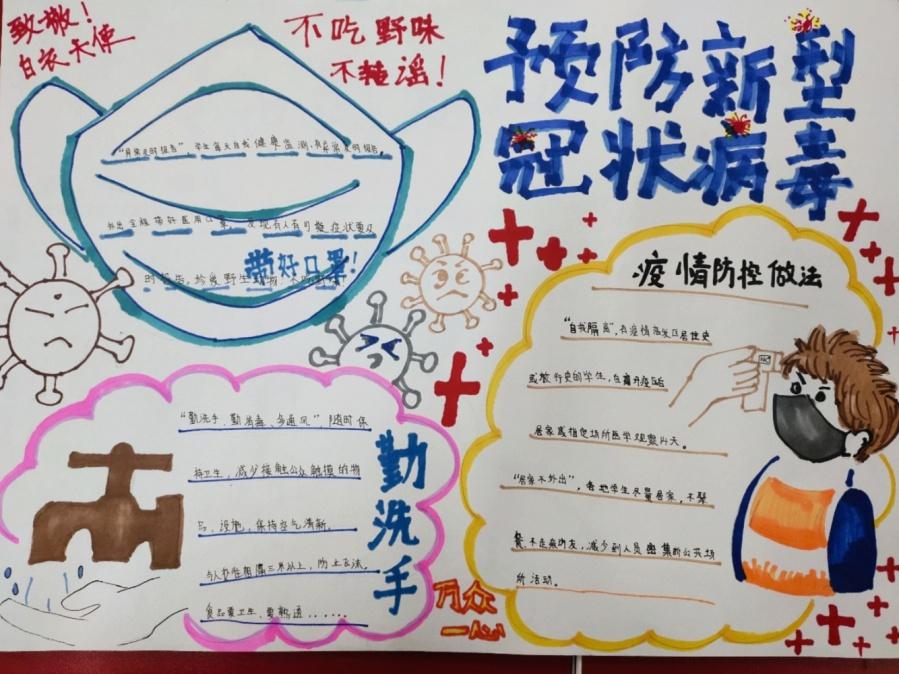 致敬！
白衣天使
不吃野味
不辣谣！
预防新型
冠状病毒
学生每天自我健康监测，有异常及时报告。
外出全程带好医用口罩，发现有人有可疑症状要及
时报告，珍爱野生动物，不吃野味！
带好口罩！
疫情防控做法
“自我隔离”，有疫情
或旅行史的学生，自离开疫区后
居家或指定场所医学观察14天。
“居家不外出”，各地学生尽量居家，不聚
餐，不走亲访友，减少到人员密集的公共场
所活动。
“勤洗手、勤消毒、多通风”随时保
持卫生，减少接触公众触摸的物
品、设施，保持空气清新。
与人交往相隔三米以上，防止飞沫。
食品要卫生、要熟透……
勤洗手
万众
一心